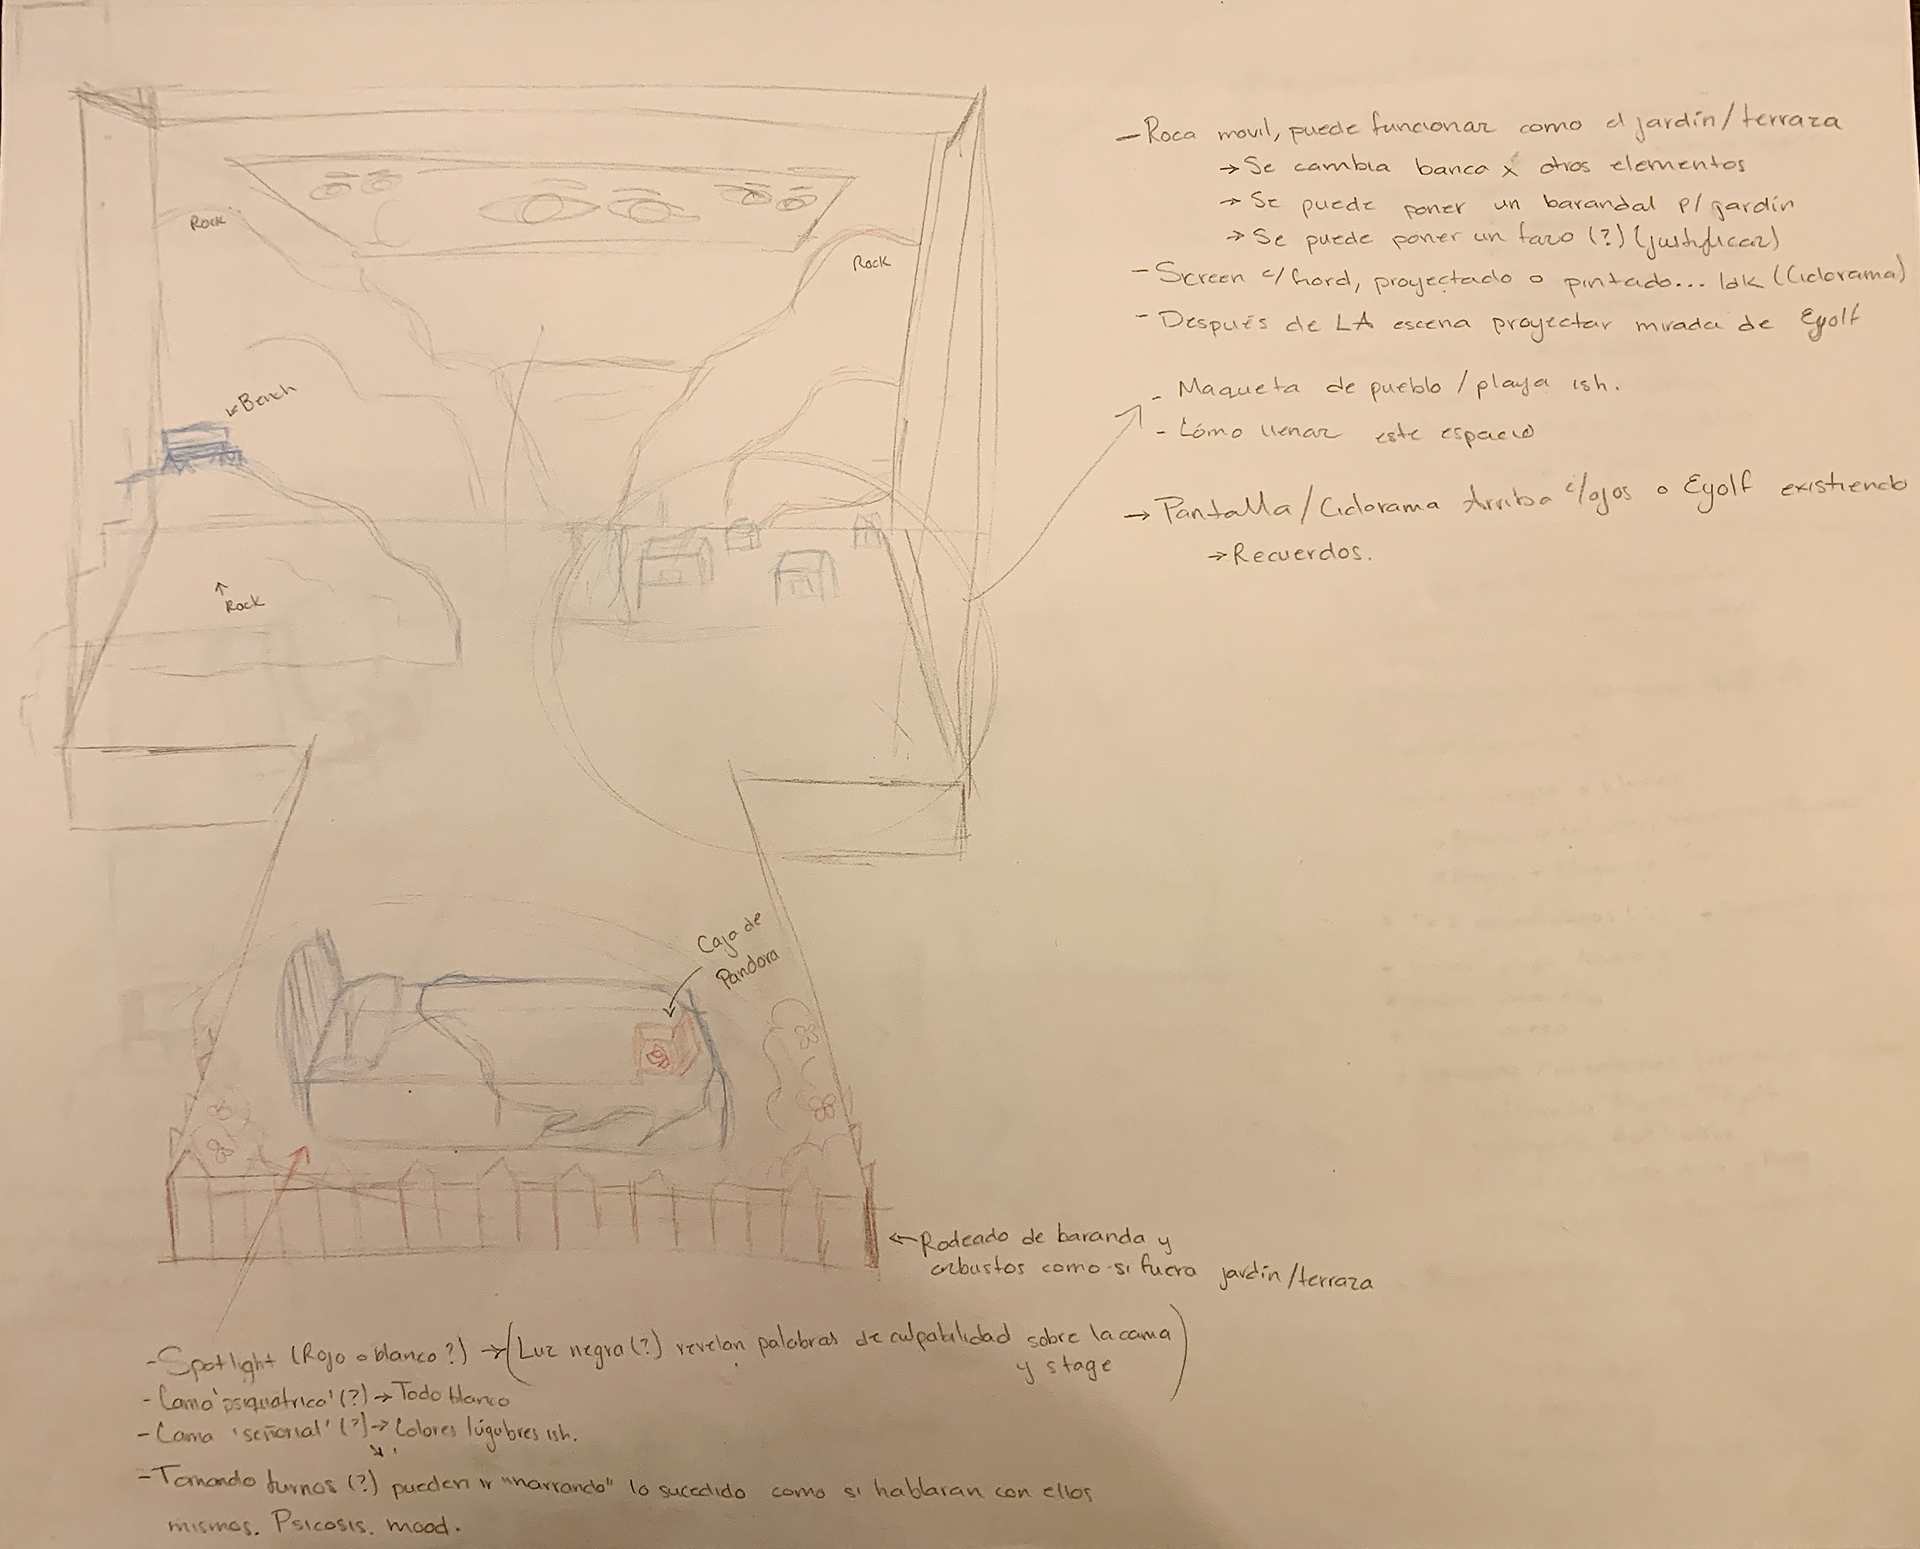 - Roca movil, puede funcionar como el jardín/terraza
→ Se cambia banca x otros elementos
→ Se puede poner un barandal p/ jardín
→ Se puede poner un faro (?) (justificar)
- Screen c/ fiord, proyectado o pintado... Idk (Ciclorama)
- Después de LA escena proyectar mirada de Eyolf
- Maqueta de pueblo / playa ish.
- Cómo llenar este espacio
→ Pantalla/Ciclorama Arriba c/ojos o Eyolf existiendo
→ Recuerdos.
Rock
Rock
← Bench
Rock
Caja de
Pandora
← Rodeado de baranda y
arbustos como si fuera jardín/terraza
- Spotlight (Rojo o blanco?) → (Luz negra (?) revelan palabras de culpabilidad sobre la cama
y stage)
- Cama 'psiquiatrico' (?) → Todo blanco
- Cama 'señorial' (?) → Colores lúgubres ish.
- Tomando turnos (?) pueden ir "narrando" lo sucedido como si hablaran con ellos
mismos. Psicosis. mood.